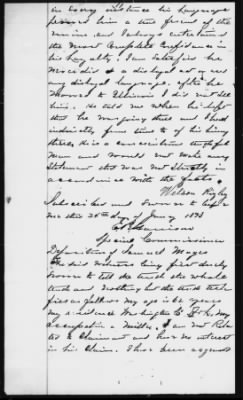 in every instance his language
proves him a true friend of the
Union and I always entertained
the most complete Confidence in
his loyalty. I am satisfied he
never did a disloyal act or used
any disloyal language after he
moved to Illinois I did not see
him. He told me when he left
that he was going there and I heard
indirectly from time to of his being
there, he is a conscientious truthful
man and would not make any
Statement that was not strictly in
accordance with the facts.
Wilson Rigby
Subscribed and Sworn to before
me this 20th day of January 1873
Harrison
Special Commissioner
Deposition of Samuel Mayer
The said witness being first duly
Sworn to tell the truth the whole
truth and Nothing but the truth testi
fies as follows My age is 62 years
my residence Washington D.C. my
occupation a I am not Rela
ted to Claimant and have no interest
in his Claim. I have been acquainted